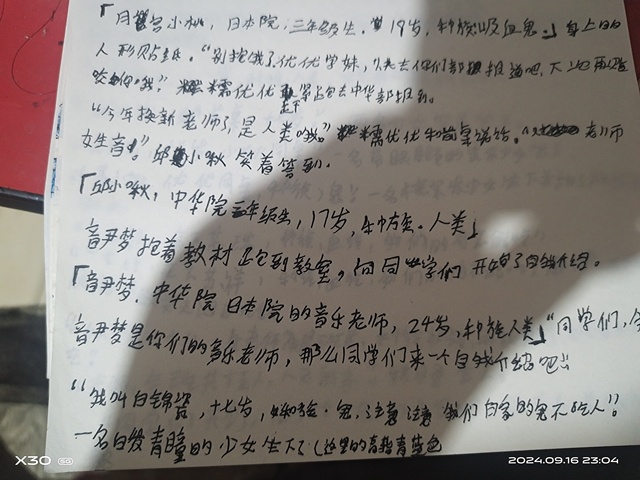 「月 小桃，日本院，三年级生，19岁，种族吸血鬼」身上的
人形贴纸。"别抱饿了优优学妹，快去你们部报道吧，不
咬你哦？" 糯优优 紧 跑去中华部报到。
"今年接新老师了，是人类哦。" 糯优优和 说话。" 老师
女生音。" 邱小啾笑着答到。
「邱小啾，中华院三年级生，17岁，种族。人类」
音尹梦抱着教材跑到教室，向同学们开始了自我介绍。
「音尹梦，中华院日本院的音乐老师，24岁，种族人类」"同学们，
音尹梦是你们的音乐老师，那么同学们来一个自我介绍吧"
"我叫白锦瓷，十七岁，种族·鬼，注意注意我们白家的鬼不吃人"
一名白发青瞳的少女坐下（这里的青指青蓝色
X30 5G
2024.09.16 23:04